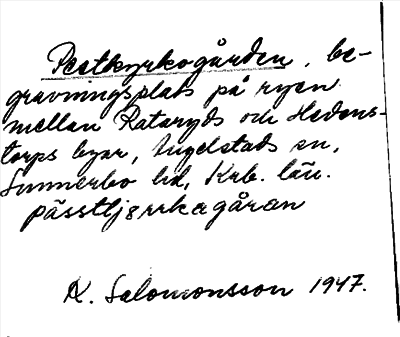 Pestkyrkogården, be-
gravningsplats på ryen
mellan Rataryds och Hedens-
torps byar, Ingelstads sn,
Sunnerbo hd, Krb. län.
pässttjärrkagåran
K. Salomonsson 1947.